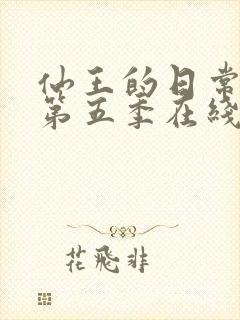 仙王的日常
第五季在綫
花飛非